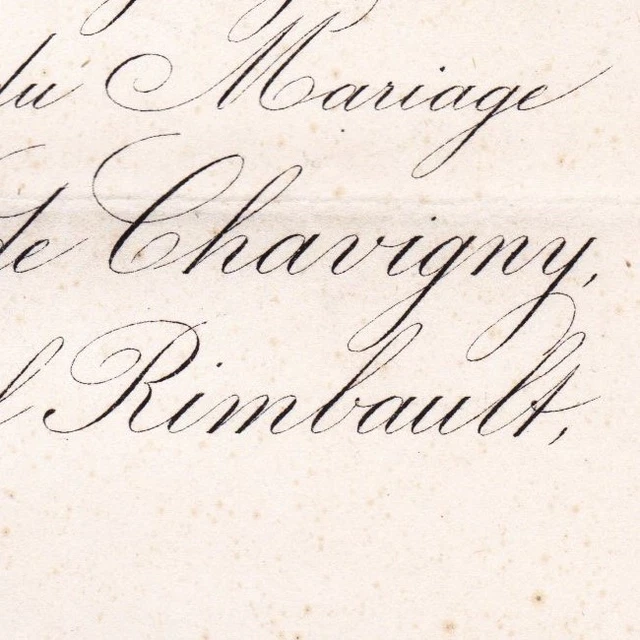 du Mariage
de Chavigny,
Rimbault,